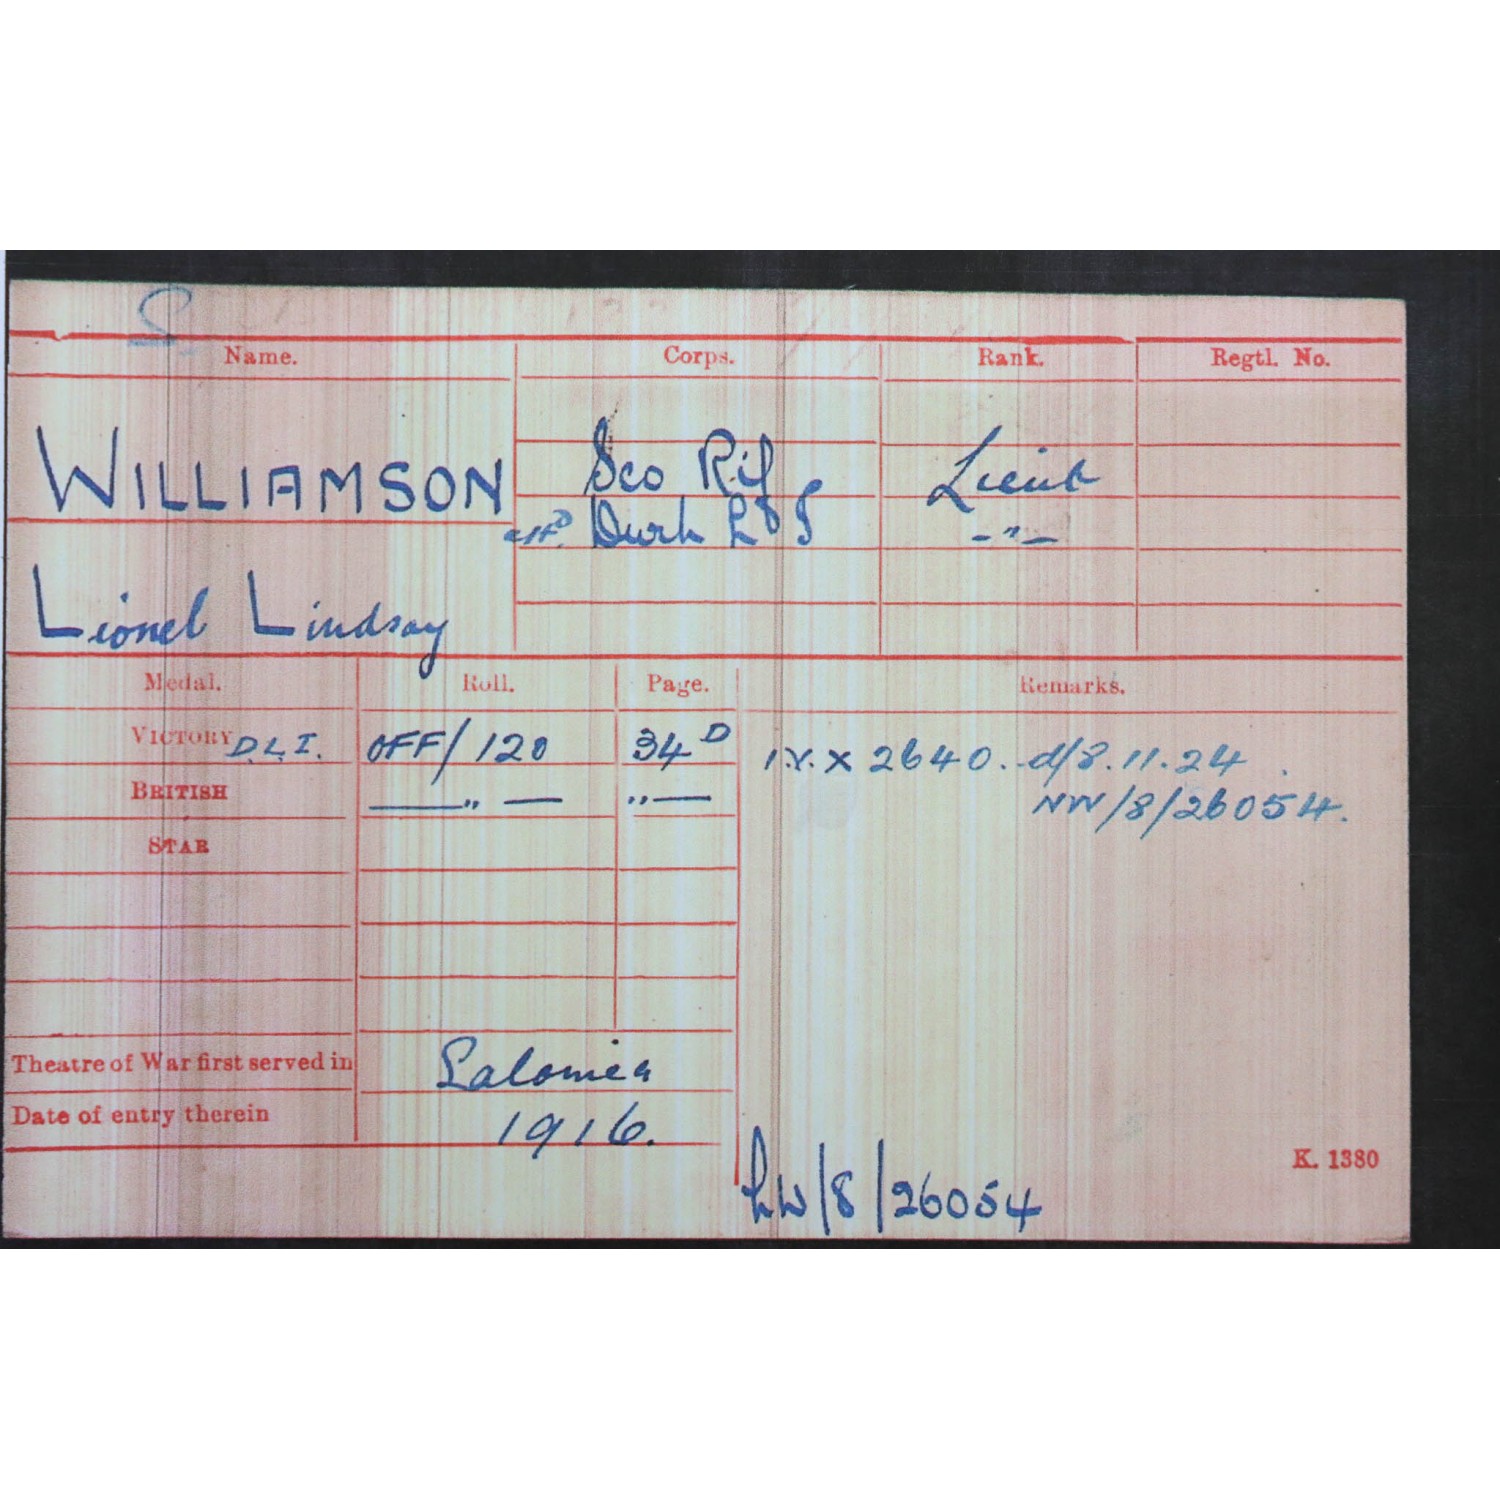 Name. Corps. Rank. Regtl. No.
WILLIAMSON Sco Rif Lieut
attd Durh L I -"-
Lionel Lindsay
Medal. Roll. Page. Remarks.
VICTORY D.L.I. OFF/120 34D I.V. X 2640. d/8.11.24
BRITISH —"— "— NW/8/26054.
STAR
Theatre of War first served in Salonica
Date of entry therein 1916.
K. 1380
NW/8/26054